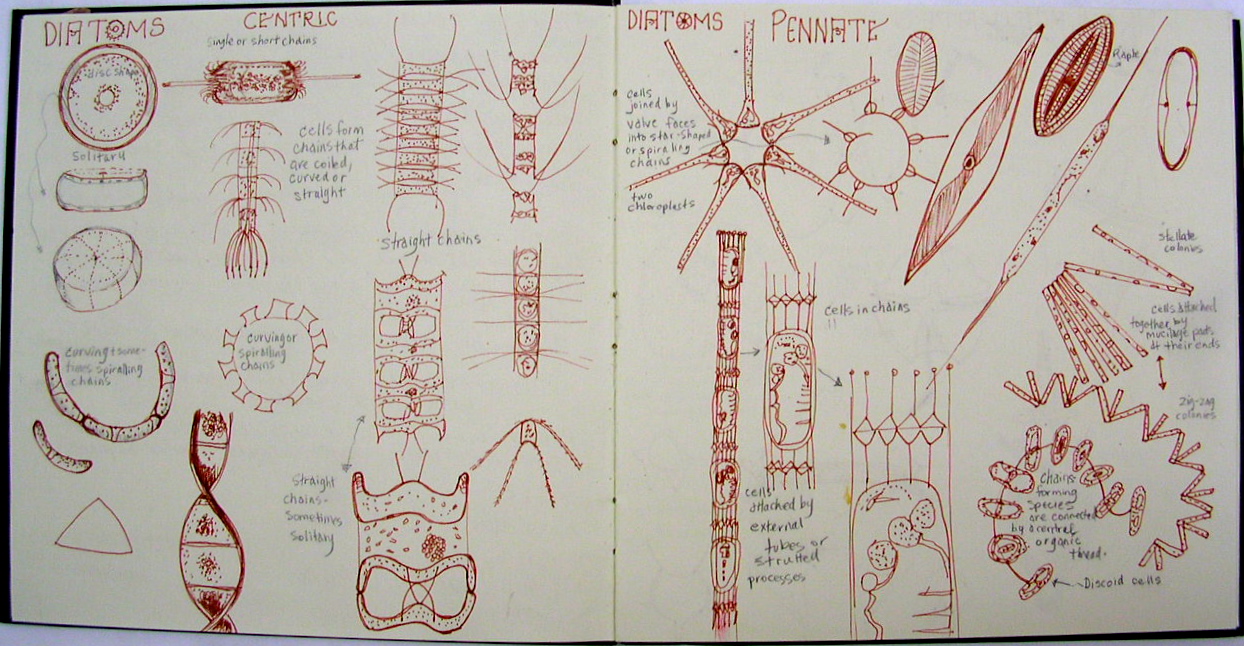 DIATOMS
CENTRIC
single or short chains
disc shape
Solitary
cells form
chains that
are coiled,
curved or
straight
straight chains
curving or
spiralling
chains
curving + some-
times spiralling
chains
straight
chains -
sometimes
solitary
DIATOMS
PENNATE
cells
joined by
valve faces
into star-shaped
or spiraling
chains
two
chloroplasts
cells in chains
"
cells
attached by
external
tubes or
strutted
processes
stellate
colonies
cells attached
together by
mucilage pads
at their ends
zig-zag
colonies
Chains-
forming
species
are connected
by a central
organic
thread.
Discoid cells